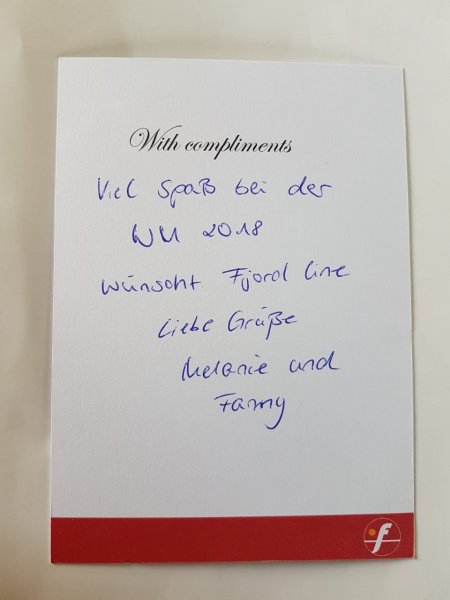 With compliments
Viel Spaß bei der
WM 2018
wünscht Fjord Line
Liebe Grüße
Melanie und
Fanny
f